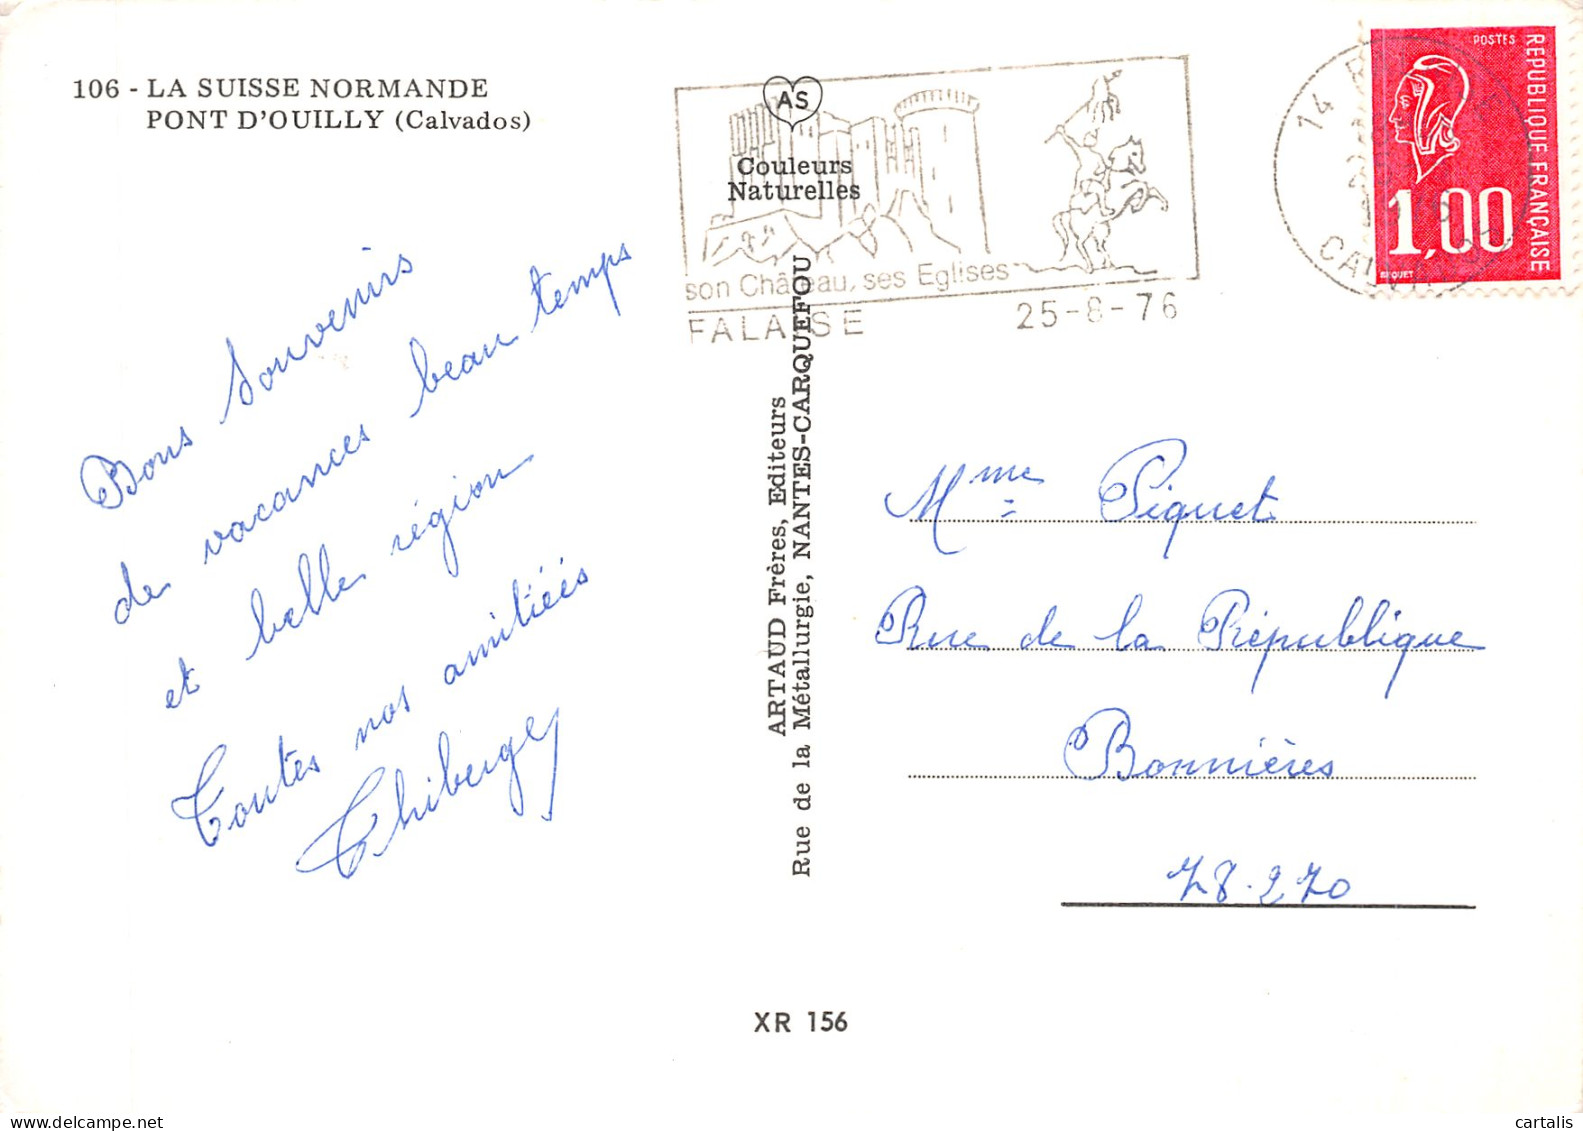 106 - LA SUISSE NORMANDE
PONT D'OUILLY (Calvados)
AS
Couleurs
Naturelles
son Château, ses Eglises
FALAISE
25-8-76
14
CALVADOS
POSTES
REPUBLIQUE FRANÇAISE
1,00
BEQUET
Bons Souvenirs
de vacances beau temps
et belle région
Toutes nos amitiéés
Thiberge
ARTAUD Frères, Editeurs
Rue de la Métallurgie, NANTES-CARQUEFOU
Mme Piquet
Rue de la République
Bonnières
78.270
XR 156
cartalis